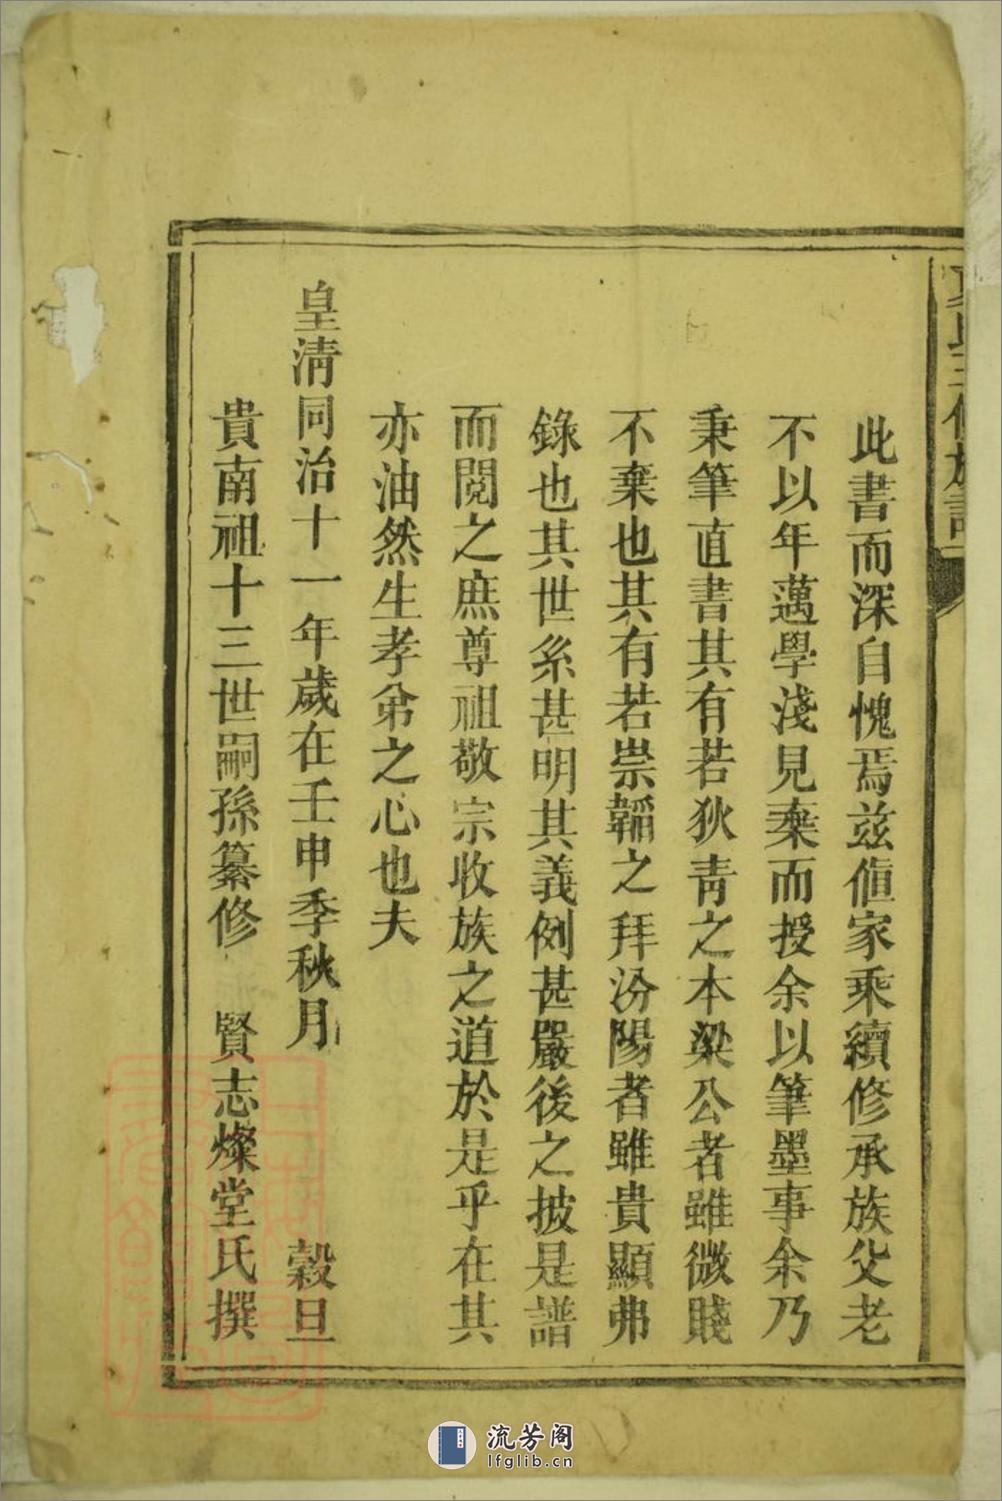 此書而深自愧焉兹値家乘續修承族父老
不以年邁學淺見棄而授余以筆墨事余乃
秉筆直書其有若狄青之本梁公者雖微賤
不棄也其有若崇韜之拜汾陽者雖貴顯弗
錄也其世系甚明其義例甚嚴後之披是譜
而閱之庶尊祖敬宗收族之道於是乎在其
亦油然生孝弟之心也夫
皇清同治十一年歲在壬申季秋月 穀旦
貴南祖十三世嗣孫纂修 賢志燦堂氏撰
流芳阁
lfglib.cn